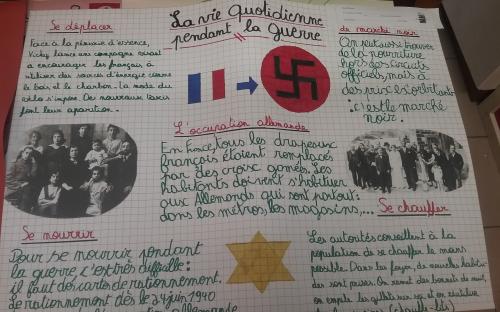 La vie Quotidienne
pendant la guerre
Se déplacer
Face à la pénurie d'essence,
Vichy lance une campagne visant
à encourager les français à
utiliser des sources d'énergie comme
le bois et le charbon. La mode du
vélo s'impose. De nouveaux taxis
font leur apparition.
du marché noir
On peut aussi trouver
de la nourriture
hors des circuits
officiels, mais à
des prix exorbitants
: c'est le marché
noir.
L'occupation allemande
En France, tous les drapeaux
français étaient remplacés
par des croix gamées. Les
habitants doivent s'habituer
aux Allemands qui sont partout:
dans les métros, les magasins,...
Se nourrir
Pour se nourrir pendant
la guerre, c'est très difficile:
il faut des cartes de rationnement.
Le rationnement dès le 24 juin 1940
allemande
Se chauffer
Les autorités conseillent à la
population de se chauffer le moins
possible. Dans les foyers, de nouvelles habitu-
des sont prises. On remet des bonnets de nuit,
on empile les gilets sur soi et on réutilise